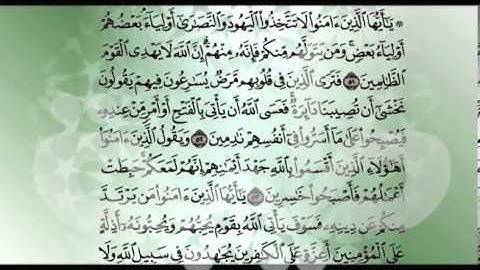 ۞ يَٰٓأَيُّهَا ٱلَّذِينَ ءَامَنُوا۟ لَا تَتَّخِذُوا۟ ٱلْيَهُودَ وَٱلنَّصَٰرَىٰٓ أَوْلِيَآءَ بَعْضُهُمْ
أَوْلِيَآءُ بَعْضٍ وَمَن يَتَوَلَّهُم مِّنكُمْ فَإِنَّهُۥ مِنْهُمْ إِنَّ ٱللَّهَ لَا يَهْدِى ٱلْقَوْمَ
ٱلظَّٰلِمِينَ ۝٥١ فَتَرَى ٱلَّذِينَ فِى قُلُوبِهِم مَّرَضٌ يُسَٰرِعُونَ فِيهِمْ يَقُولُونَ
نَخْشَىٰٓ أَن تُصِيبَنَا دَآئِرَةٌ فَعَسَى ٱللَّهُ أَن يَأْتِىَ بِٱلْفَتْحِ أَوْ أَمْرٍ مِّنْ عِندِهِۦ
فَيُصْبِحُوا۟ عَلَىٰ مَآ أَسَرُّوا۟ فِىٓ أَنفُسِهِمْ نَٰدِمِينَ ۝٥٢ وَيَقُولُ ٱلَّذِينَ ءَامَنُوٓا۟
أَهَٰٓؤُلَآءِ ٱلَّذِينَ أَقْسَمُوا۟ بِٱللَّهِ جَهْدَ أَيْمَٰنِهِمْ إِنَّهُمْ لَمَعَكُمْ حَبِطَتْ
أَعْمَٰلُهُمْ فَأَصْبَحُوا۟ خَٰسِرِينَ ۝٥٣ يَٰٓأَيُّهَا ٱلَّذِينَ ءَامَنُوا۟ مَن يَرْتَدَّ
مِنكُمْ عَن دِينِهِۦ فَسَوْفَ يَأْتِى ٱللَّهُ بِقَوْمٍ يُحِبُّهُمْ وَيُحِبُّونَهُۥٓ أَذِلَّةٍ
عَلَى ٱلْمُؤْمِنِينَ أَعِزَّةٍ عَلَى ٱلْكَٰفِرِينَ يُجَٰهِدُونَ فِى سَبِيلِ ٱللَّهِ وَلَا